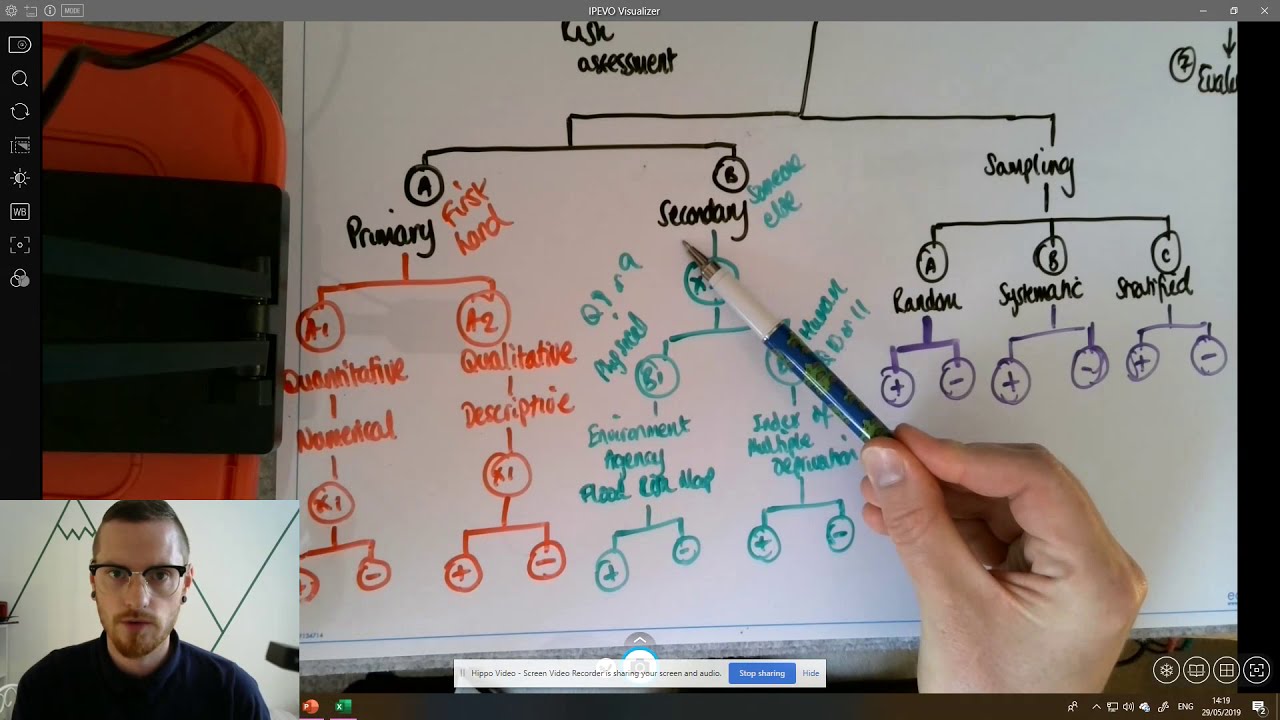 MODE
IPEVO Visualizer
Risk
assessment
7
WB
A
Primary
First
hand
A-1
Quantitative
Numerical
x1
-
A-2
Qualitative
Descriptive
x1
+
-
B
Secondary
Someone
else
Physical
B1
Environment
Agency
Flood Risk Map
+
-
Human
Index of
Multiple
Deprivation
+
-
Sampling
A
Random
+
-
B
Systematic
+
-
C
Stratified
+
-
Hippo Video - Screen Video Recorder is sharing your screen and audio.
Stop sharing
Hide
ENG
14:19
29/05/2019
2